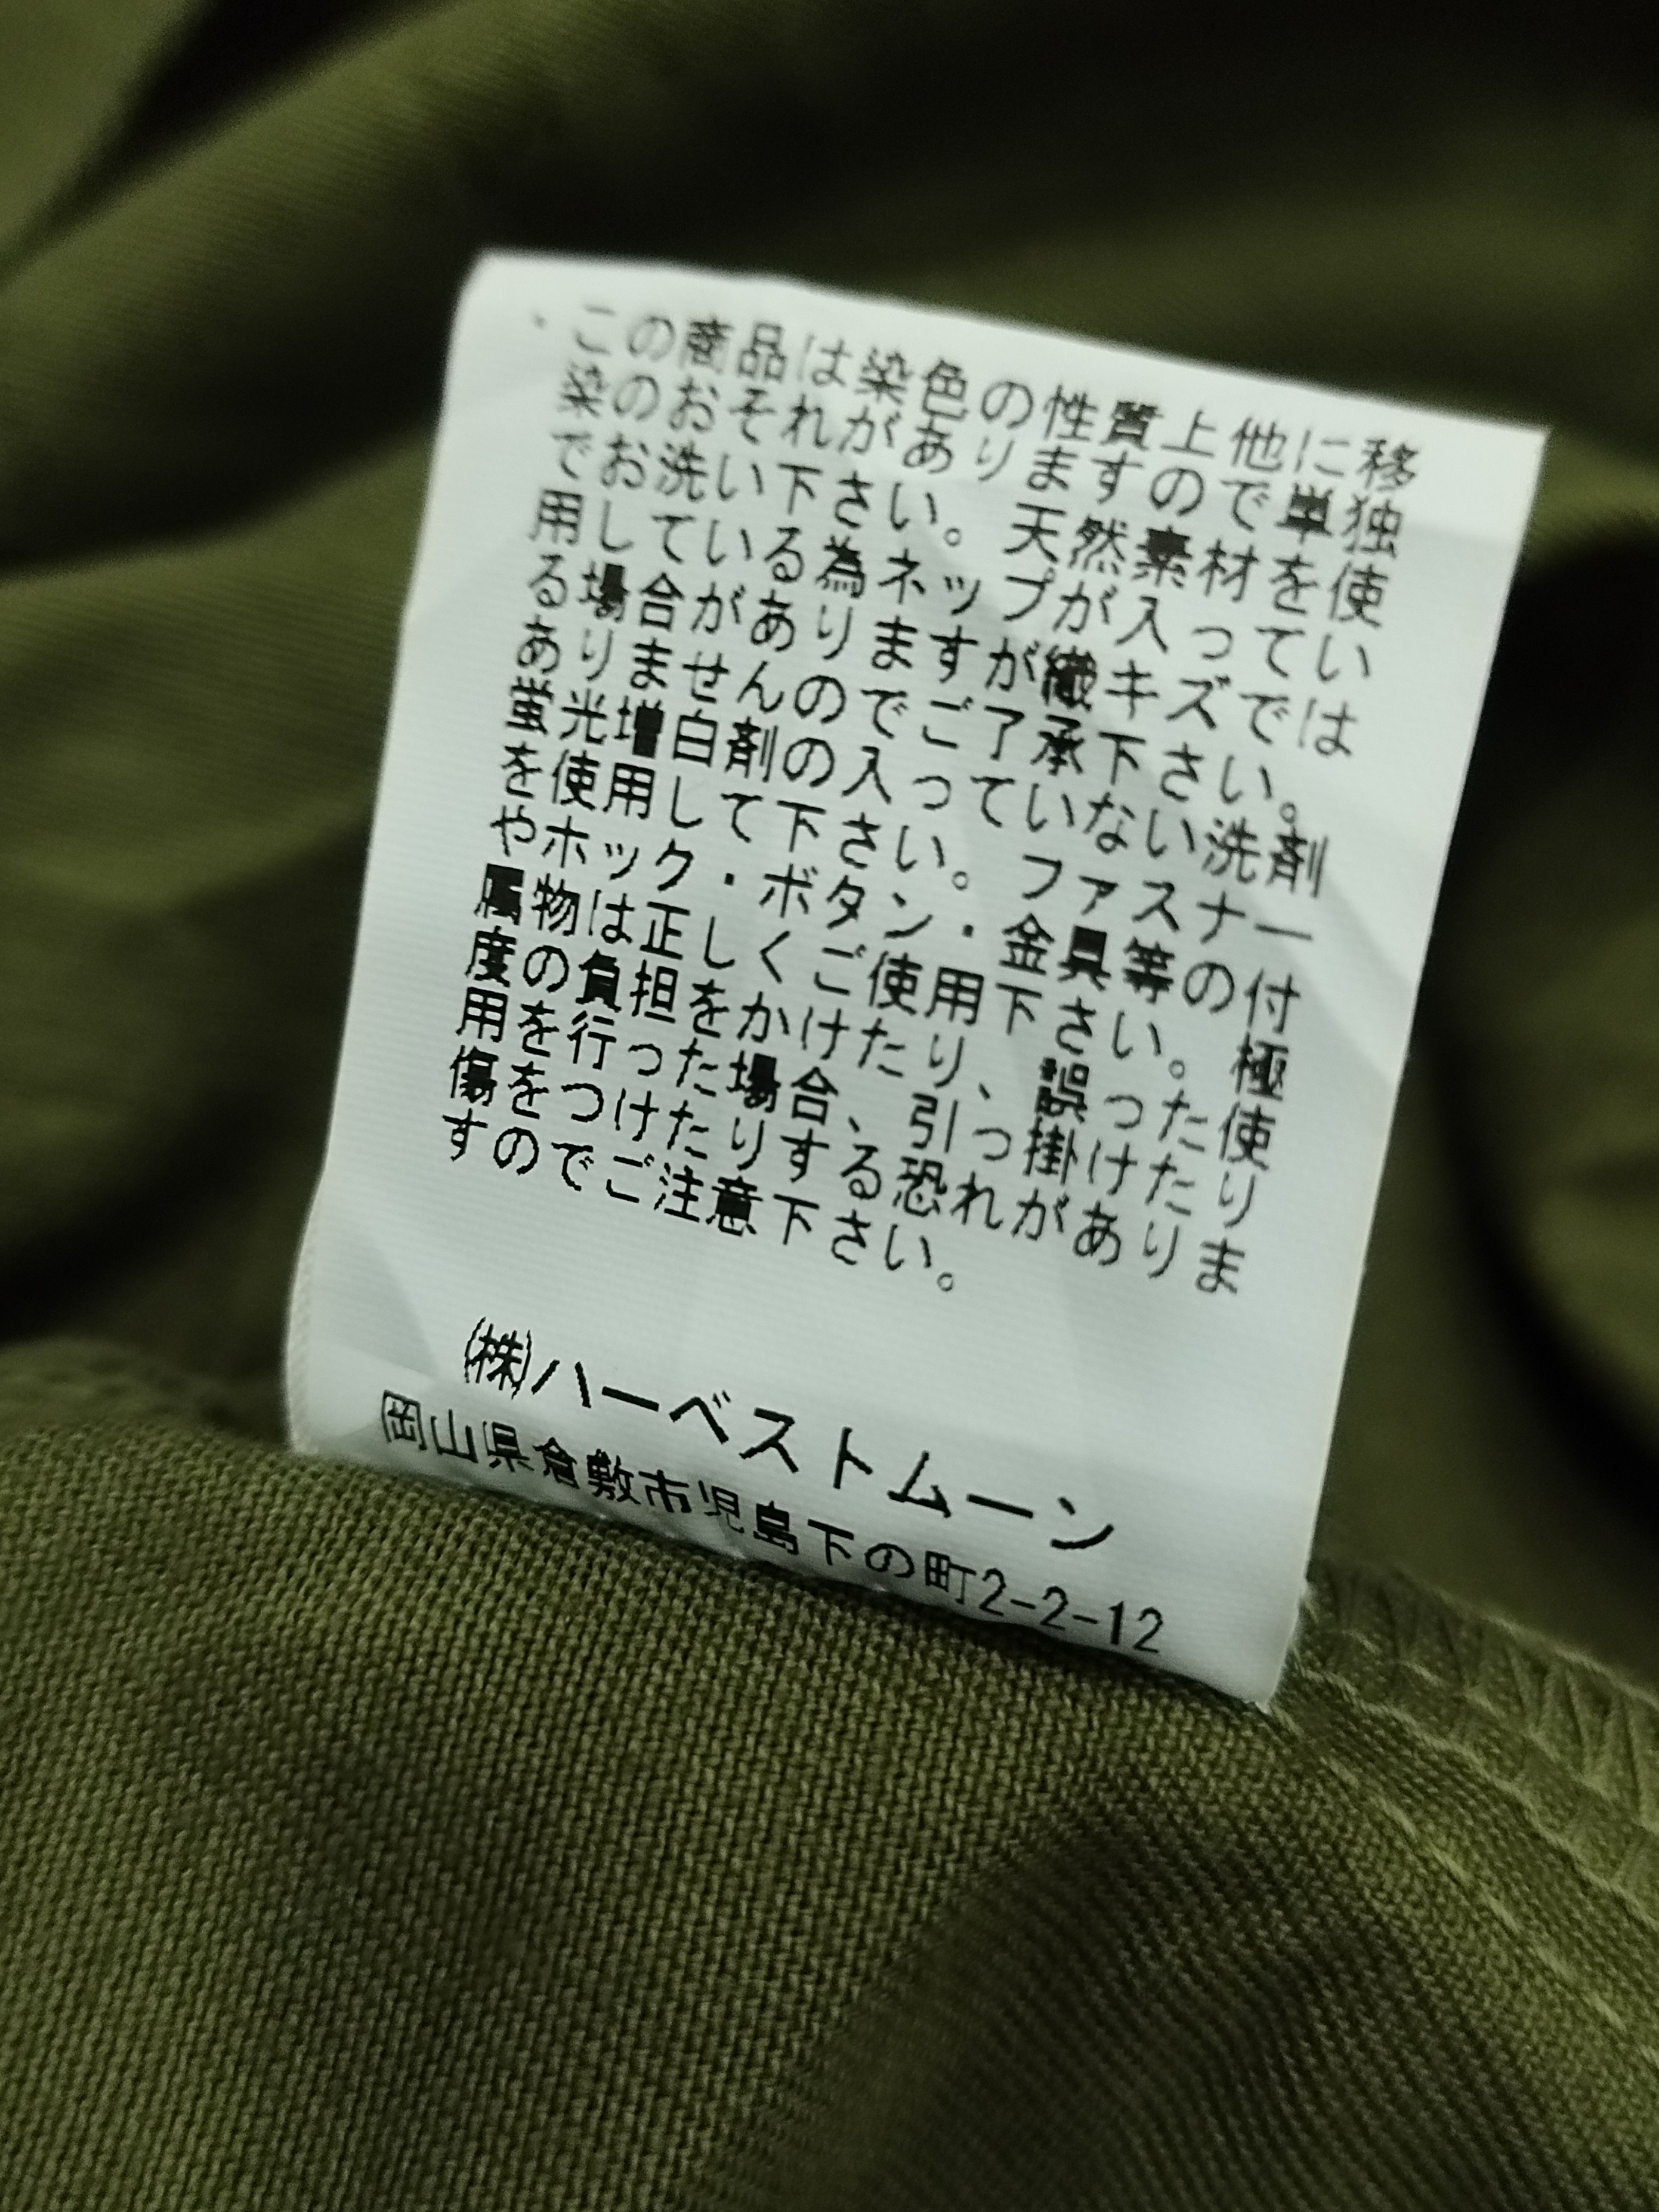 ・この商品は染色の性質上他に移
染のおそれがありますので単独
でお洗い下さい。天然素材を使
用している為ネップが入ってい
る場合がありますが織キズでは
ありませんのでご了承下さい。
蛍光増白剤の入っていない洗剤
を使用して下さい。ファスナー
やホック・ボタン・金具等の付
属物は正しくご使用下さい。極
度の負担をかけたり、誤った使
用を行った場合、引っ掛けたり
傷をつけたりする恐れがありま
すのでご注意下さい。
㈱ハーベストムーン
岡山県倉敷市児島下の町2-2-12